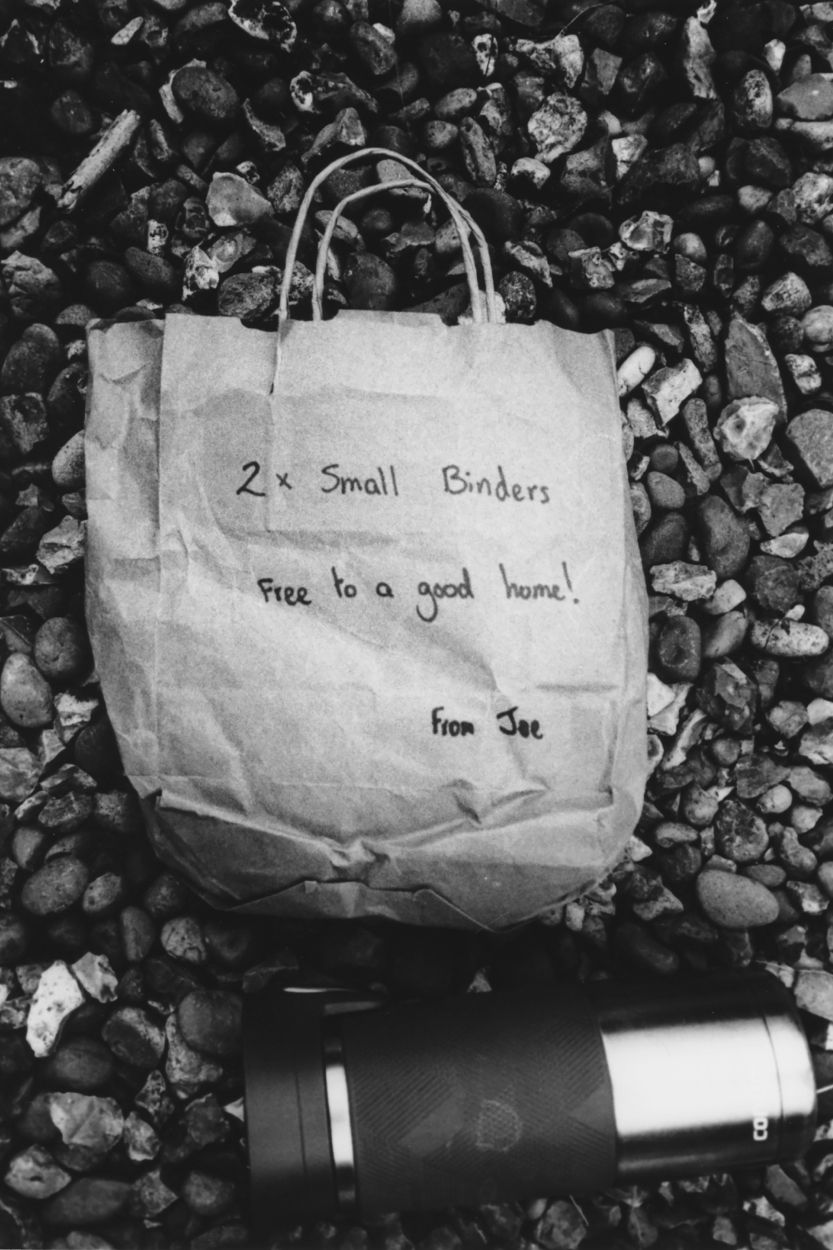 2x Small Binders
Free to a good home!
From Joe
CO